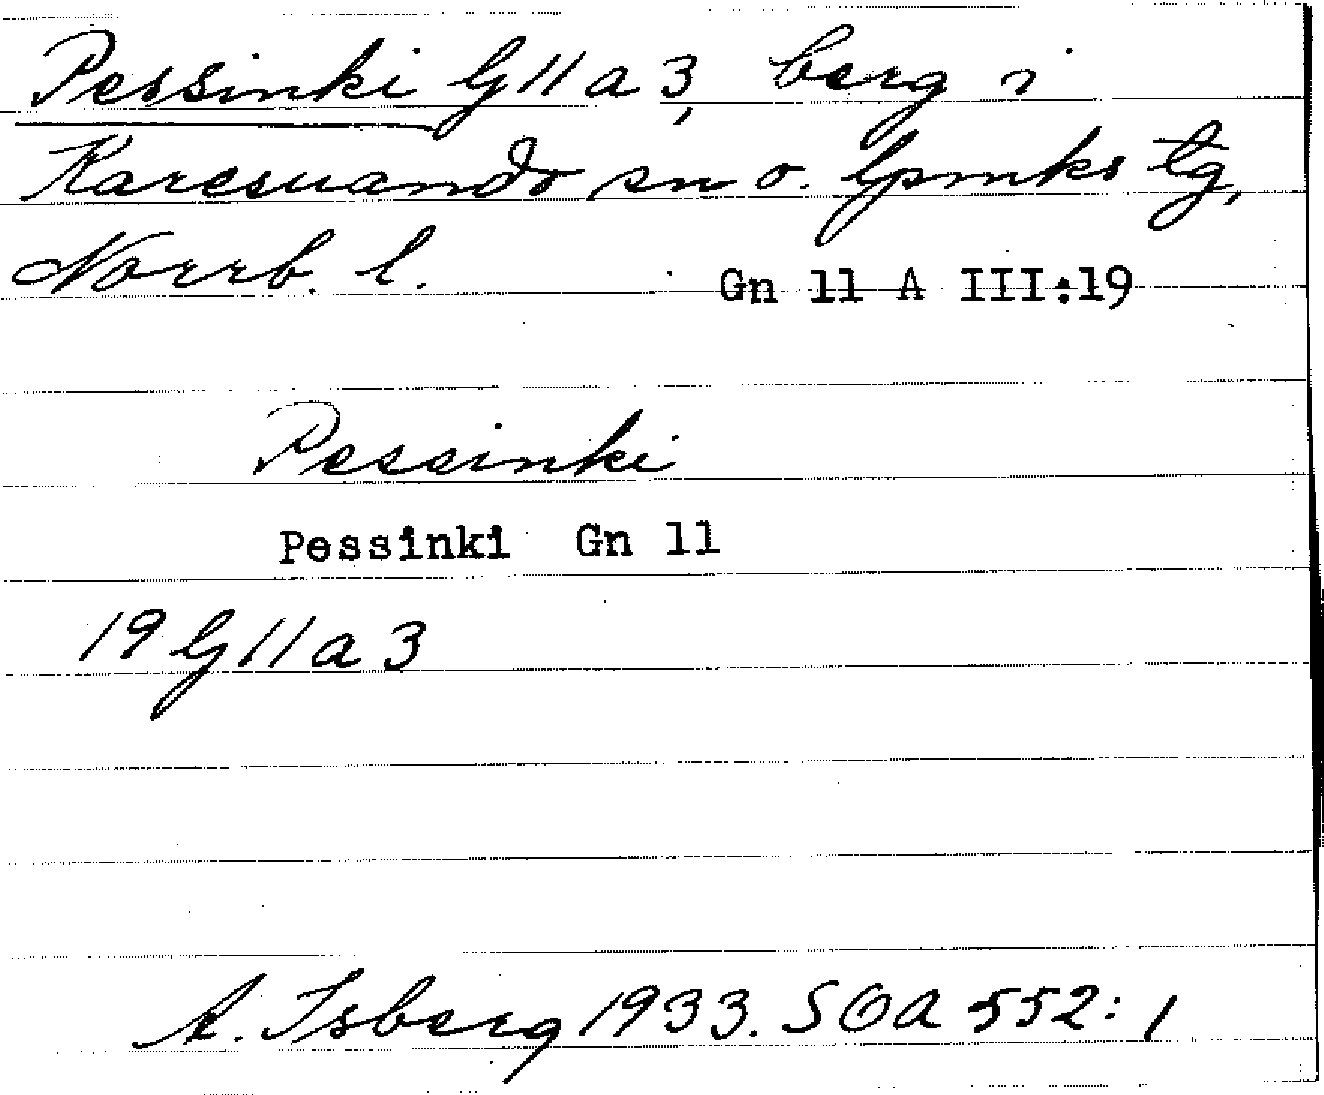 Pessinki G 11 a 3, berg i
Karesuando sn o. lpmks tg,
Norrb. l.
Gn 11 A III:19
Pessinki
Pessinki Gn 11
19 G 11 a 3
A. Isberg 1933. SOA 552:1